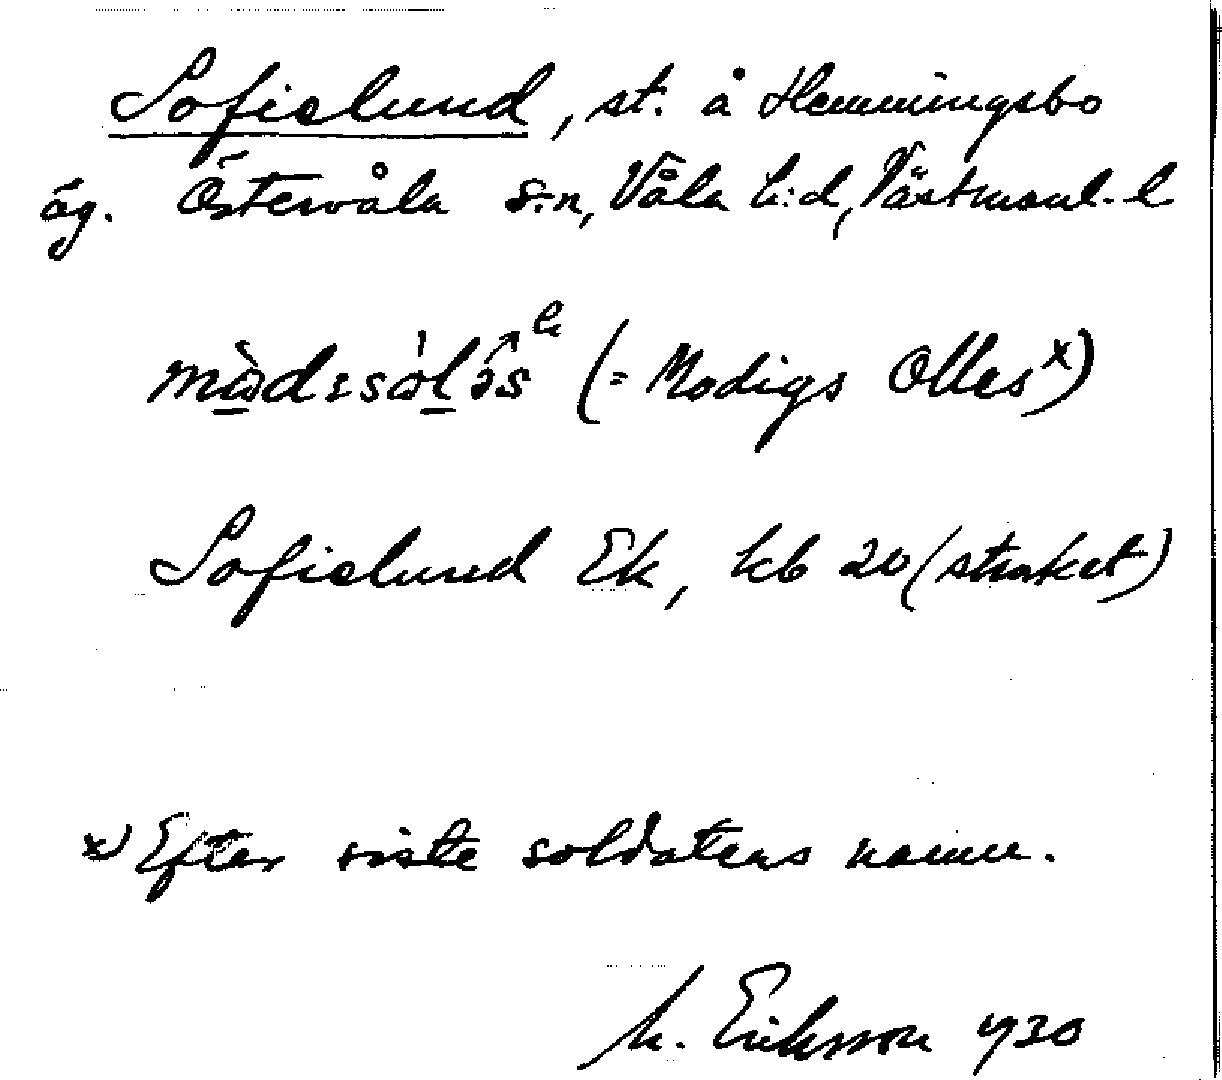 Sofielund, st. å Hemmingsbo
äg. Östervåla s:n, Våla h:d, Västmanl. l
(= Modigs Olles x)
Sofielund Ek, kb 20 (struket)
x) Efter siste soldatens namn.
M. Eriksson 1930